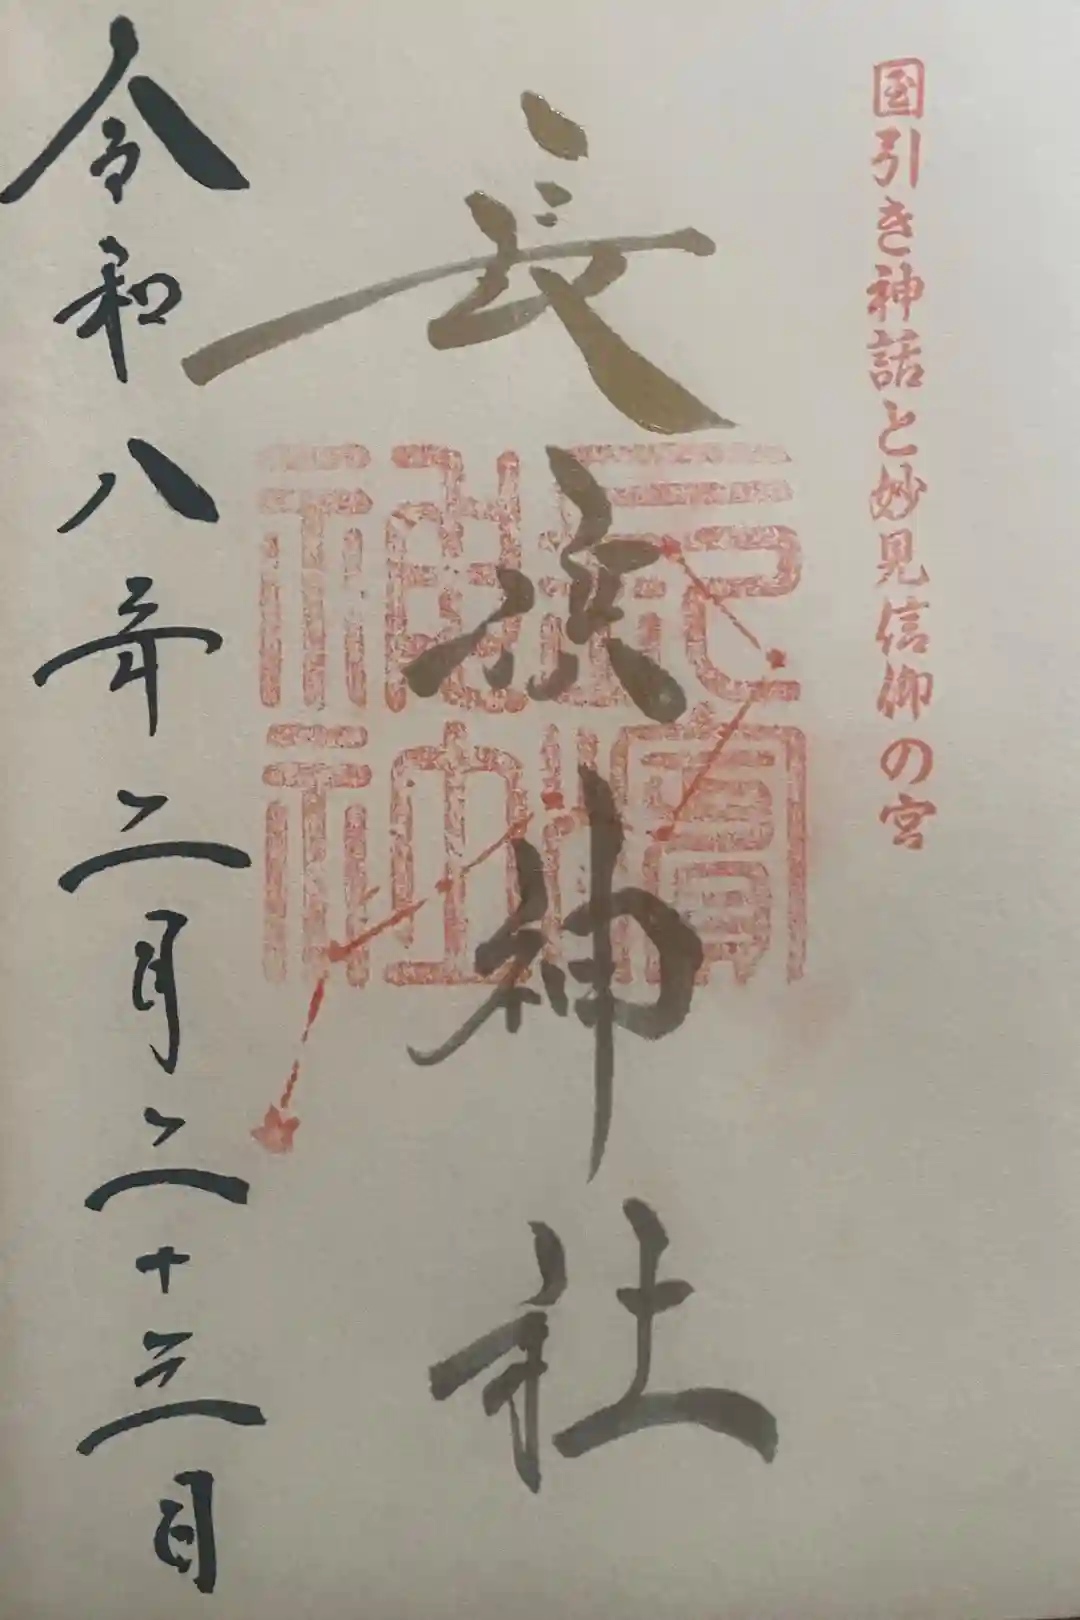 国引き神話と妙見信仰の宮
長浜神社
長濱
神社
令和八年二月二十三日